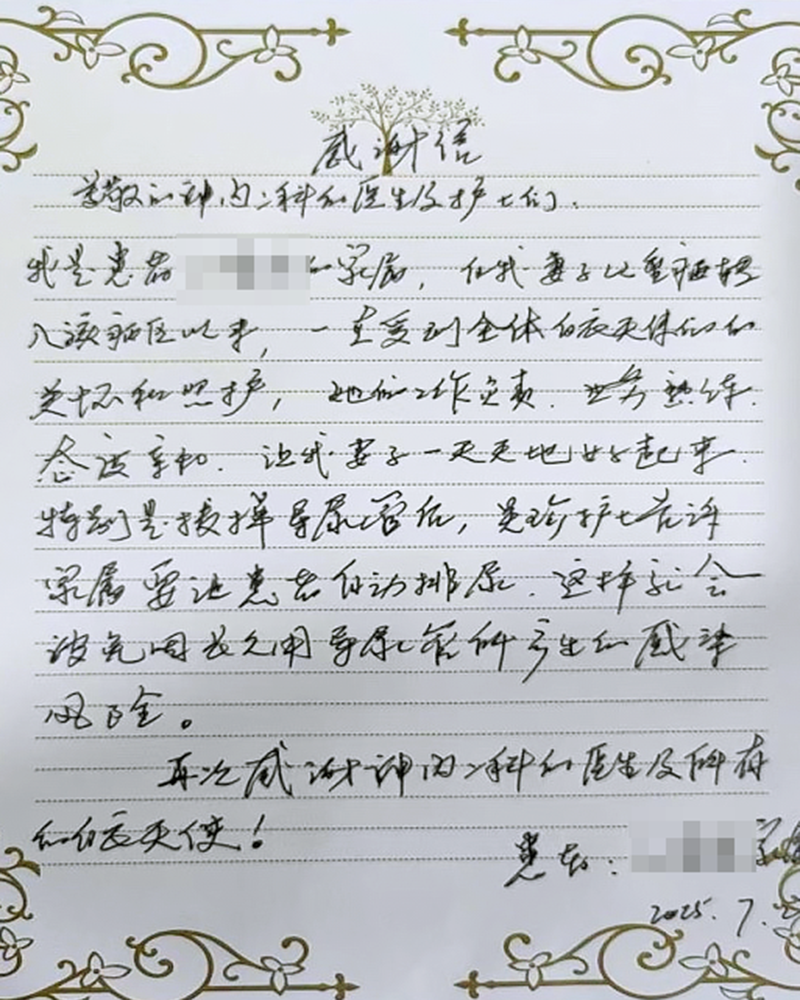 感谢信
尊敬的神内二科的医生及护士们.
我是患者 的家属, 在我妻子从重病转
入该病区以来, 一直受到全体白衣天使们的
关怀和照护, 她们工作负责. 业务熟练.
态度亲和. 让我妻子一天天地好起来.
特别是拔掉导尿管后, 护士告诉
家属要让患者自动排尿. 这样就会
避免因长久用导尿管所产生的感染
风险。
再次感谢神内二科的医生及所有
的白衣天使!
患者: 家属
2025.7.